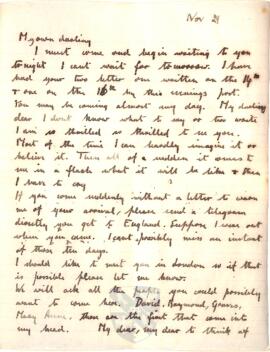 Nov 21
My own darling
I must come and begin writing to you
tonight I cant wait for tomorrow. I have
had your two letters one written on the 14th
& one on the 16th by this evenings post.
You may be coming almost any day. My darling
dear I dont know what to say or to write
I am so thrilled so thrilled to see you.
Most of the time I can hardly imagine it or
believe it. Then all of a sudden it comes to
me in a flash what it will be like & then
I have to cry
If you come suddenly without a letter to warn
me of your arrival, please send a telegram
directly you get to England. Suppose I was out
when you came. I cant possibly miss an instant
of those ten days.
I should like to meet you in London so if that
is possible please let me know.
We will ask all the people you could possibly
want to come here. David, Raymond,
those are the first that come into
my head. My dear, my dear to think of